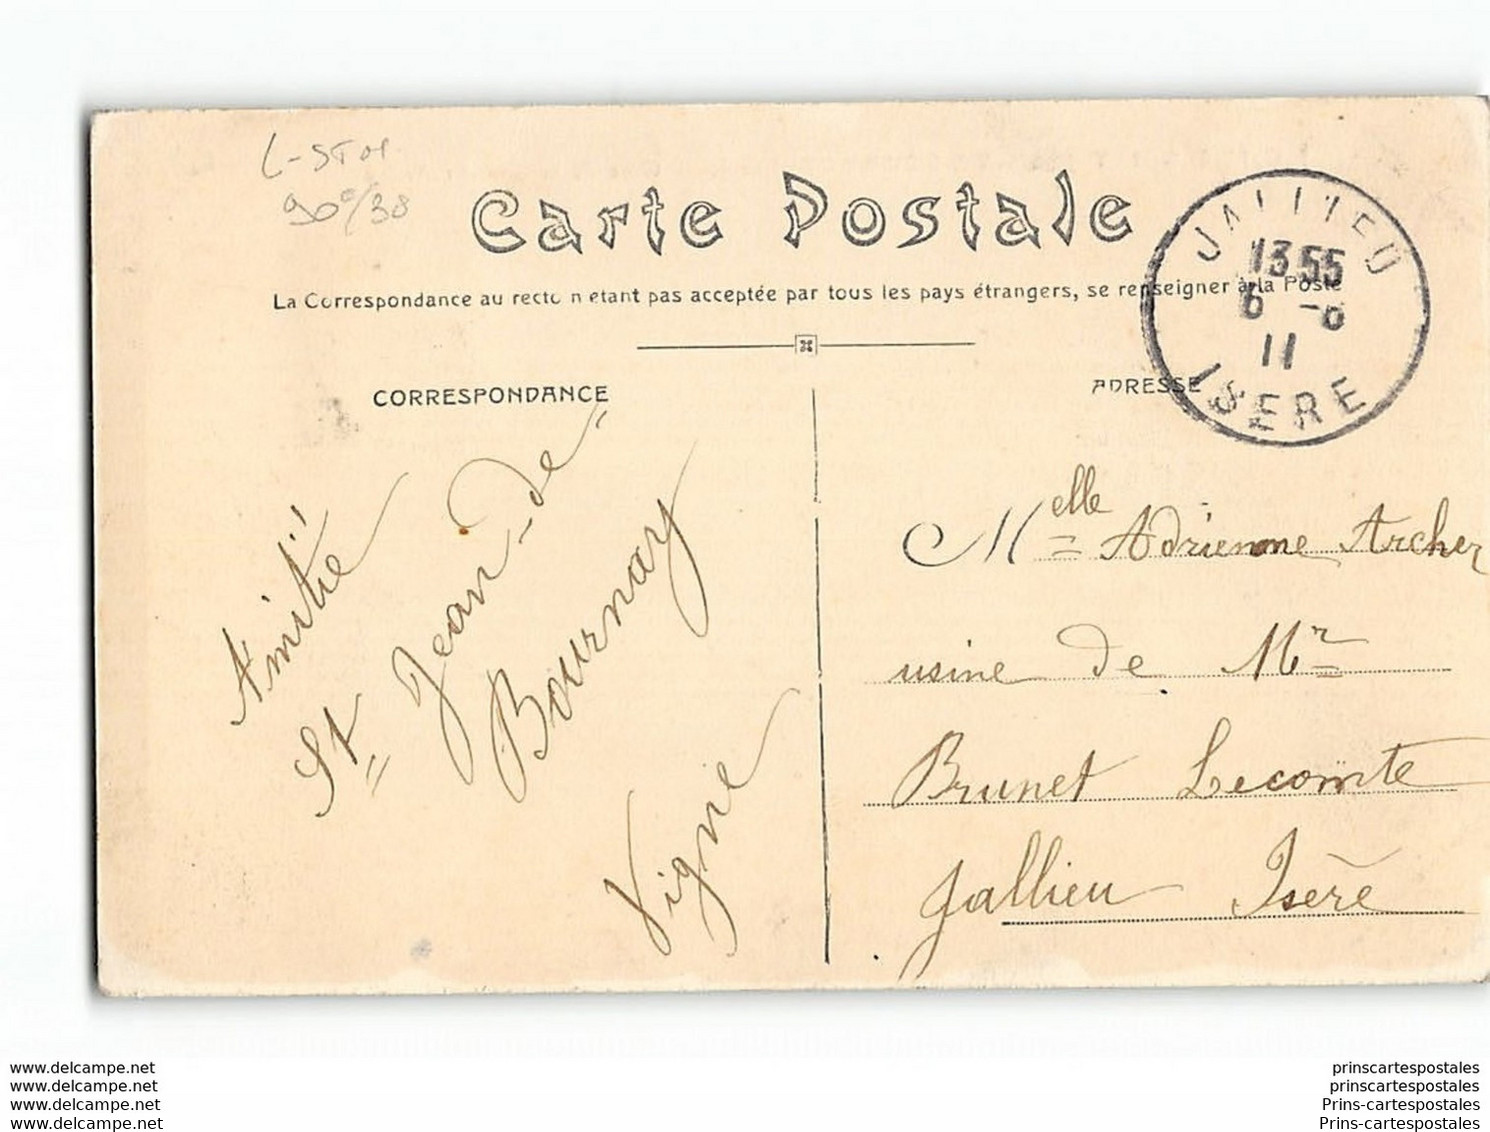 Carte Postale
La Correspondance au recto n etant pas acceptée par tous les pays étrangers, se renseigner à la Poste
CORRESPONDANCE
ADRESSE
JALLIEU
13 55
6 -6
11
ISERE
Amitié
St Jean-de-
Bournay
Vigne
Melle Adrienne Archer
usine de Mr
Brunet Lecomte
Jallieu Isère
www.delcampe.net
www.delcampe.net
www.delcampe.net
www.delcampe.net
prinscartespostales
prinscartespostales
Prins-cartespostales
Prins-cartespostales